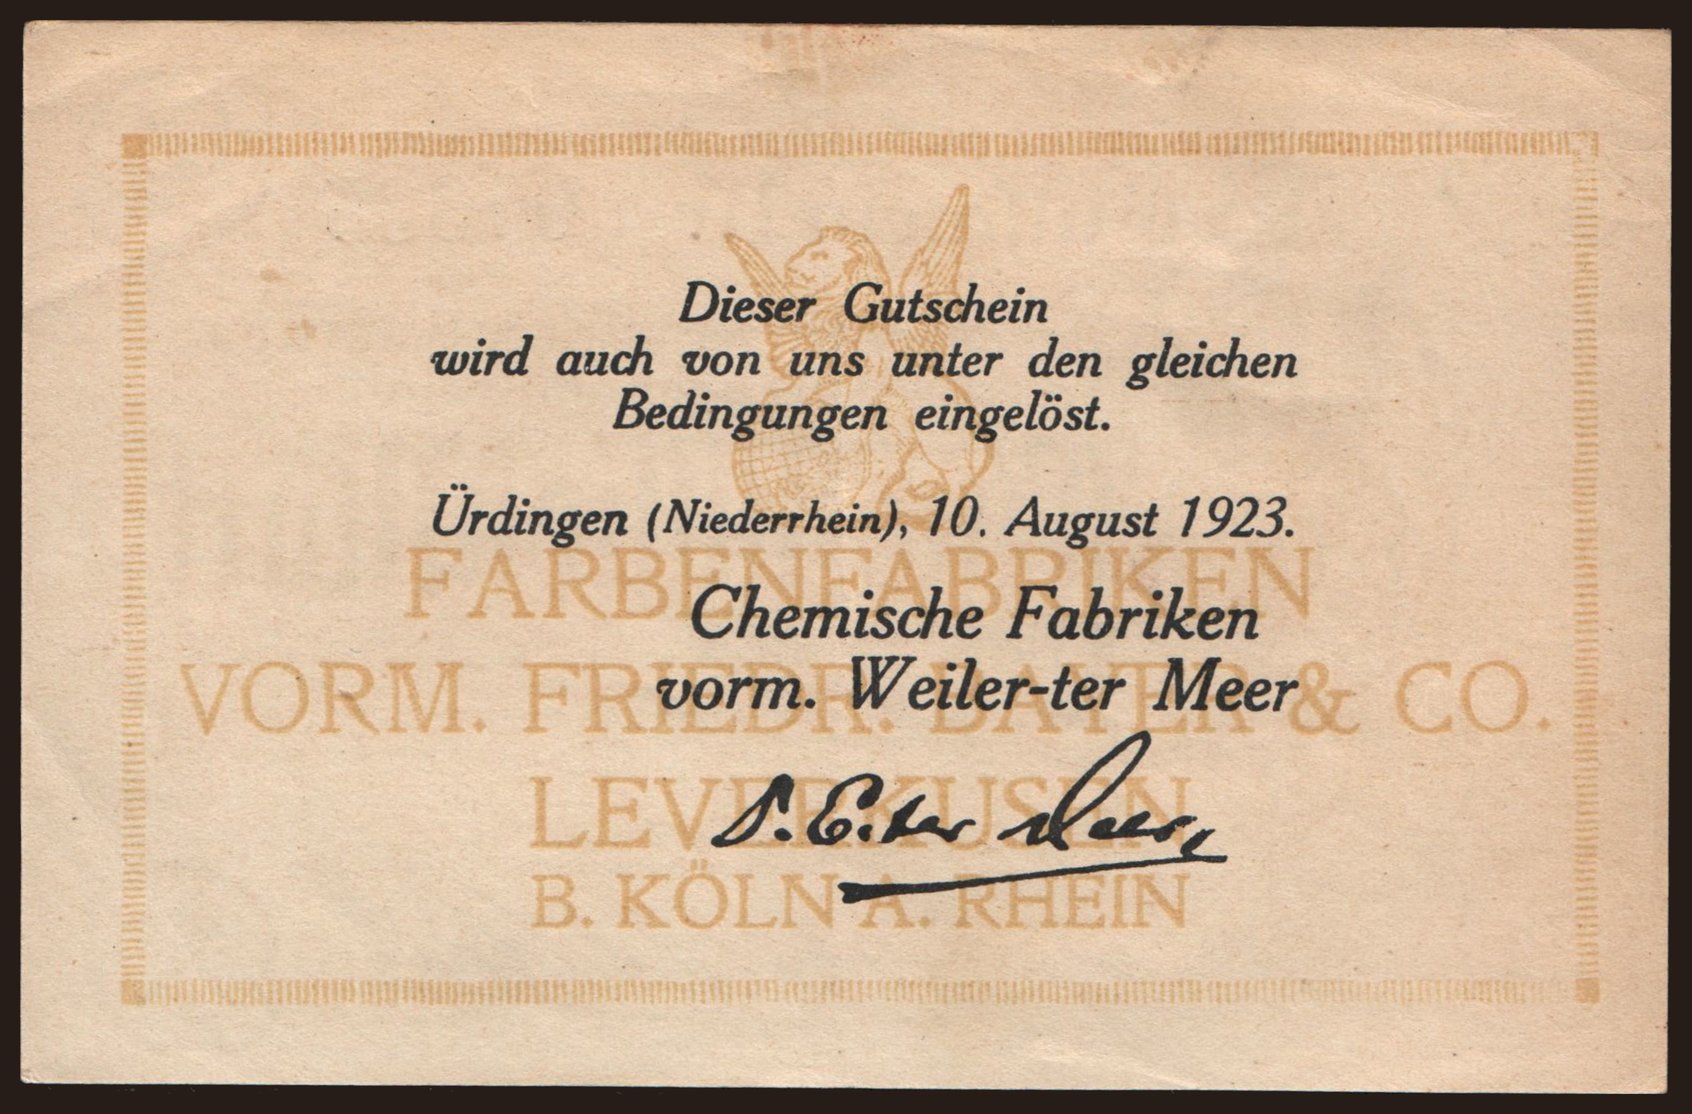 Dieser Gutschein
wird auch von uns unter den gleichen
Bedingungen eingelöst.
Ürdingen (Niederrhein), 10. August 1923.
FARBENFABRIKEN
Chemische Fabriken
VORM. FRIEDR. BAYER & CO.
vorm. Weiler-ter Meer
LEVERKUSEN
E. ter Meer
B. KÖLN A. RHEIN